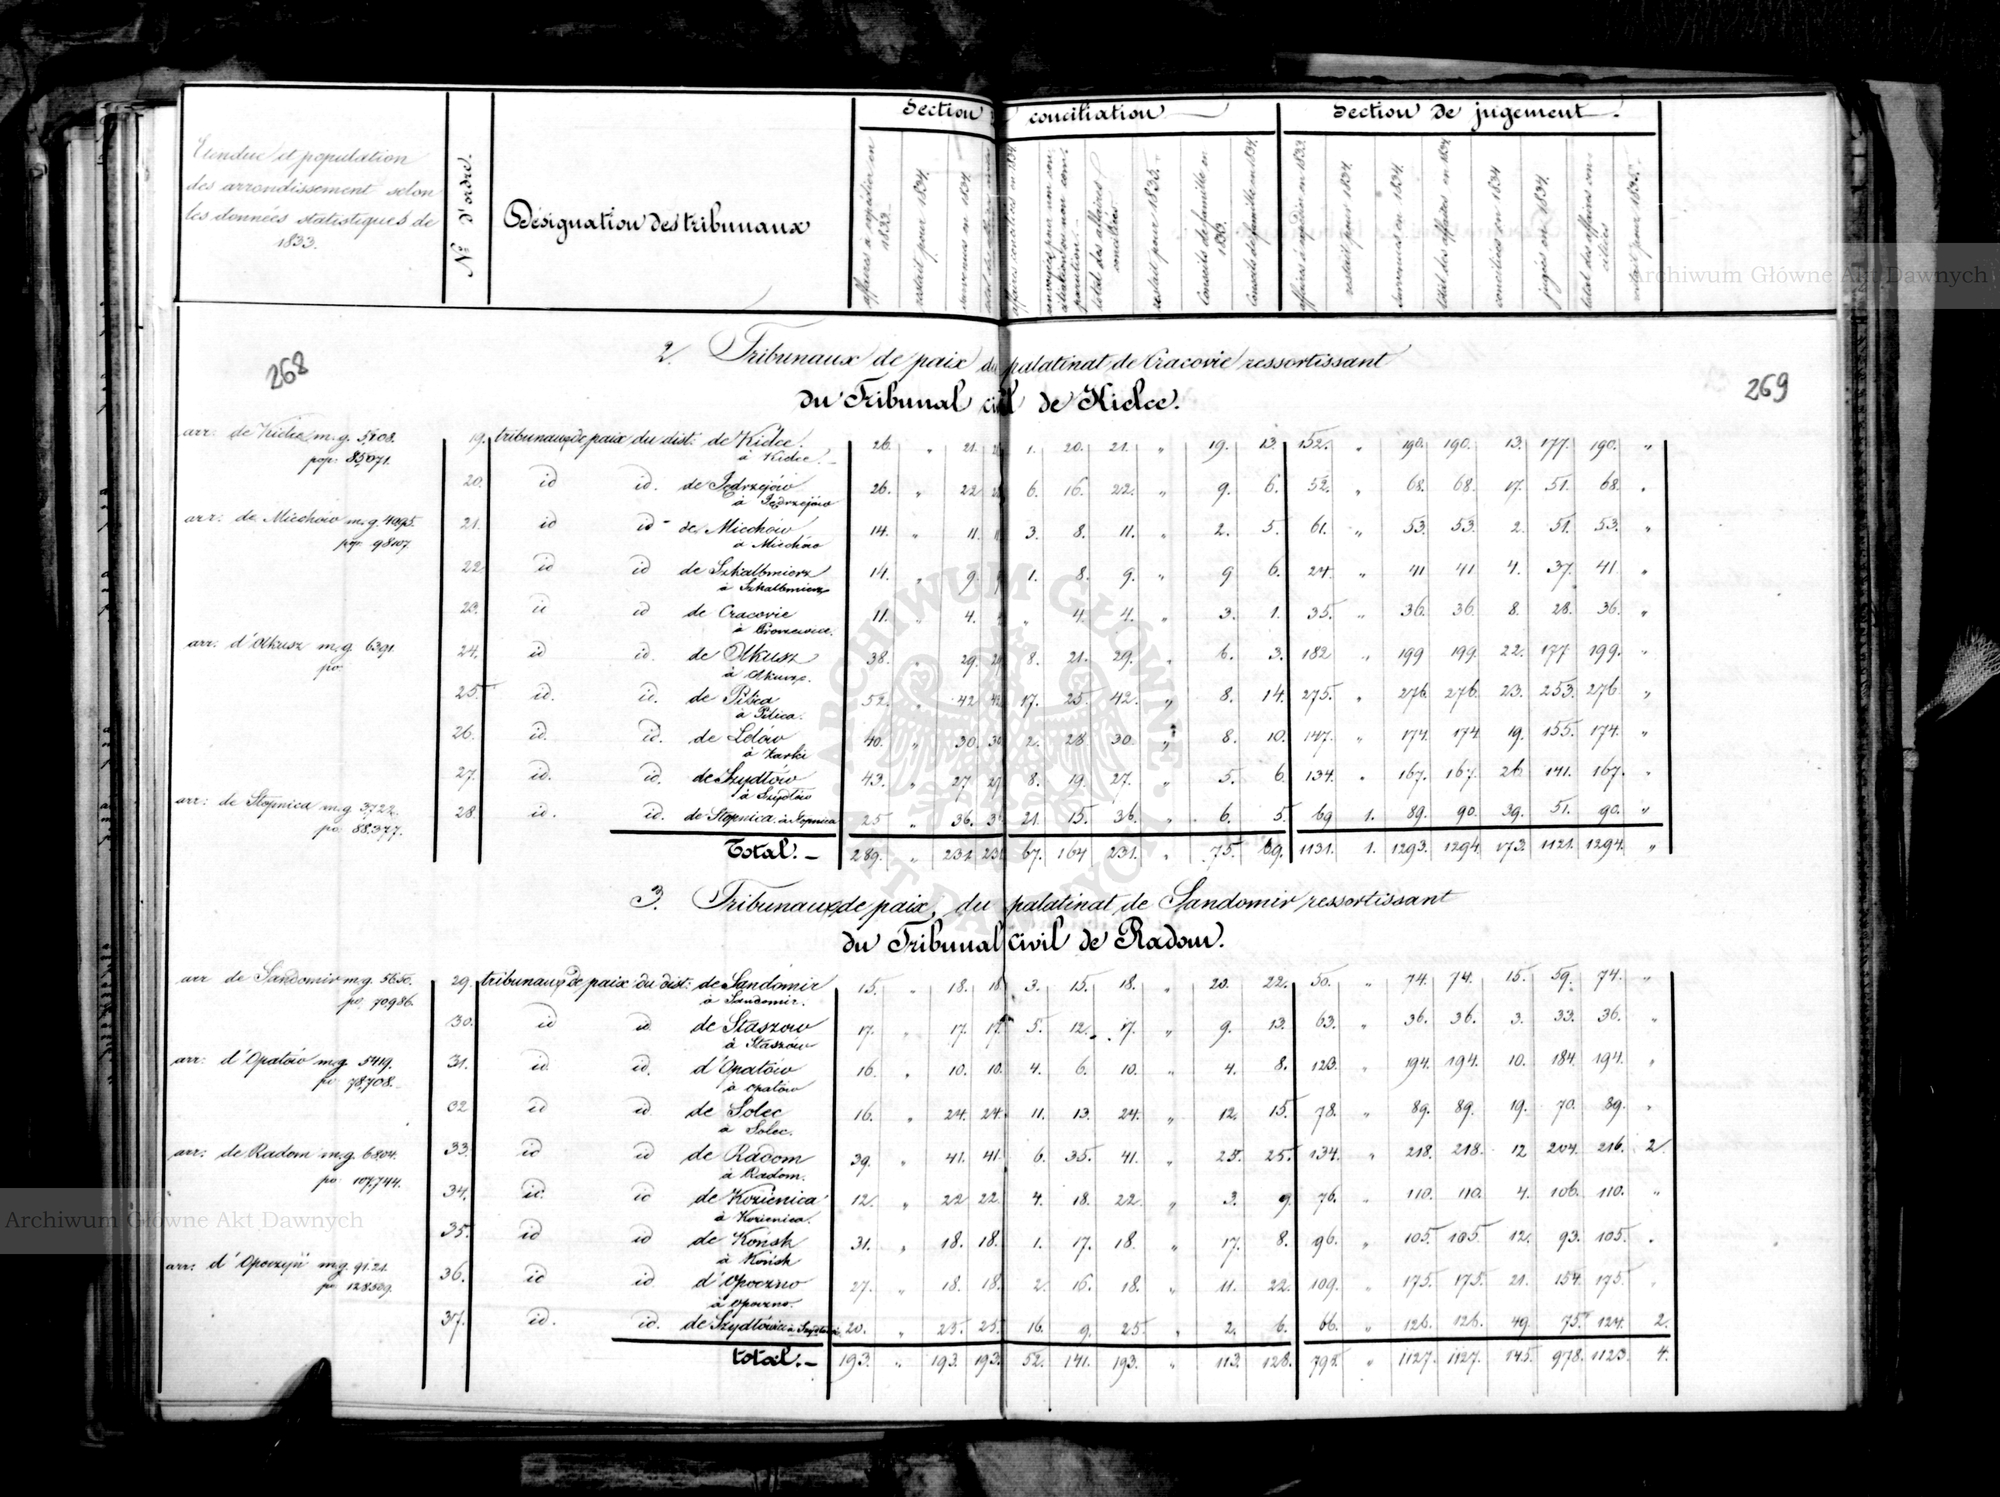 Etendue et population
des arrondissement selon
les données statistiques de
1833.
No d'ordre.
Désignation des tribunaux
Section conciliation
affaires à expédier en 1833.
restait pour 1834.
survenues en 1834.
affaires conciliées en 1834
total des affaires conciliées
restait pour 1835.
Conseils de famille en
Conseils de famille en 1834.
Section de jugement.
affaires à expédier en 1833.
restait pour 1834.
survenues en 1834.
total des affaires en 1834
conciliées en 1834
jugées en 1834.
total des affaires conciliées
restait pour 1835.
Archiwum Główne Akt Dawnych
268
269
2. Tribunaux de paix du palatinat de Cracovie ressortissant
du Tribunal civil de Kielce.
arr: de Kielce m.g. 5208.
pop: 85071.
19. tribunaux de paix du dist: de Kielce. 26. " 21. 1. 20. 21. " 19. 13. 152. " 190. 190. 13. 177. 190. "
à Kielce.
20. id id. de Jędrzejów 26. " 22 6. 16. 22. " 9. 6. 52. " 68. 68. 17. 51. 68. "
à Jędrzejów
arr: de Miechów m.g. 4095.
pop: 98107
21. id id de Miechów 14. " 11. 3. 8. 11. " 2. 5. 61. " 53. 53. 2. 51. 53. "
à Miechów
22 id id de Szkalbmierz 14. " 9. 1. 8. 9. " 9 6. 24. " 41 41 4. 37. 41. "
à Szkalbmierz
23. id id de Cracovie 11. " 4. " 4. 4. " 3. 1. 35. " 36. 36. 8. 28. 36. "
arr: d'Olkusz m.g. 6391.
po:
24. id id. de Olkusz 38. " 29. 29 8. 21. 29. " 6. 3. 182 " 199 199 22. 177 199. "
à Olkusz.
25. id. id. de Pilica 52. " 42 42 17. 25 42. " 8. 14. 275. " 276. 276. 23. 253. 276. "
à Pilica.
26. id. id. de Lelów 40. " 30. 30 2. 28 30. " 8. 10. 147. " 174. 174 19. 155. 174. "
à Żarki
27. id. id. de Szydłów 43. " 27 8. 19. 27. " 5. 6. 134. " 167. 167. 26. 141. 167. "
à Szydłów
arr: de Stopnica m.g. 3722.
po: 88.377.
28. id. id. de Stopnica à Stopnica 25 " 36. 21. 15. 36. " 6. 5. 69 1. 89. 90. 39. 51. 90. "
Total. 289. " 231. 231 67. 164 231. " 75. 69. 1131. 1. 1293. 1294 173. 1121. 1294. "
3. Tribunaux de paix, du palatinat de Sandomir ressortissant
du Tribunal civil de Radom.
arr de Sandomir m.g. 5650.
po. 70986.
29. tribunaux de paix du dist: de Sandomir 15. " 18. 18 3. 15. 18. " 20. 22. 50. " 74. 74. 15. 59. 74. "
à Sandomir.
30. id id de Staszow 17. " 17. 17. 5. 12. 17. " 9. 13. 63. " 36. 36. 3. 33. 36. "
à Staszów
arr: d'Opatów m.g. 5419.
po: 78,708.
31. id id. d'Opatów 16. " 10. 10. 4. 6. 10. " 4. 8. 123. " 194. 194. 10. 184. 194. "
à Opatów
32 id id de Solec 16. " 24. 24. 11. 13. 24. " 12. 15. 78. " 89. 89. 19. 70. 89. "
à Solec.
arr: de Radom m.g. 6804.
po: 107,744.
33. id id de Radom 39. " 41. 41. 6. 35. 41. " 25. 25. 134. " 218. 218. 12 204. 216. 2.
à Radom.
34. id. id de Kozienica 12. " 22 22. 4. 18. 22. " 3. 9. 76. " 110. 110. 4. 106. 110. "
à Kozienica.
Archiwum Główne Akt Dawnych
35. id id de Końsk 31. " 18. 18. 1. 17. 18. " 17. 8. 96. " 105. 105. 12. 93. 105. "
à Końsk
m.g. 91.21.
po 128509.
36. id id d'Opoczno 27. " 18. 18. 2. 16. 18. " 11. 22. 109. " 175. 175. 21. 154. 175. "
à Opoczno.
37. id. id. de Szydłowiec 20. " 25. 25. 16. 9. 25. " 2. 6. 66. " 126. 126. 49. 75. 124. 2.
total. 193. " 193. 193. 52. 141. 193. " 113. 128. 795. " 1127. 1127. 145. 978. 1123. 4.
ARCHIWUM GŁÓWNE AKT DAWNYCH